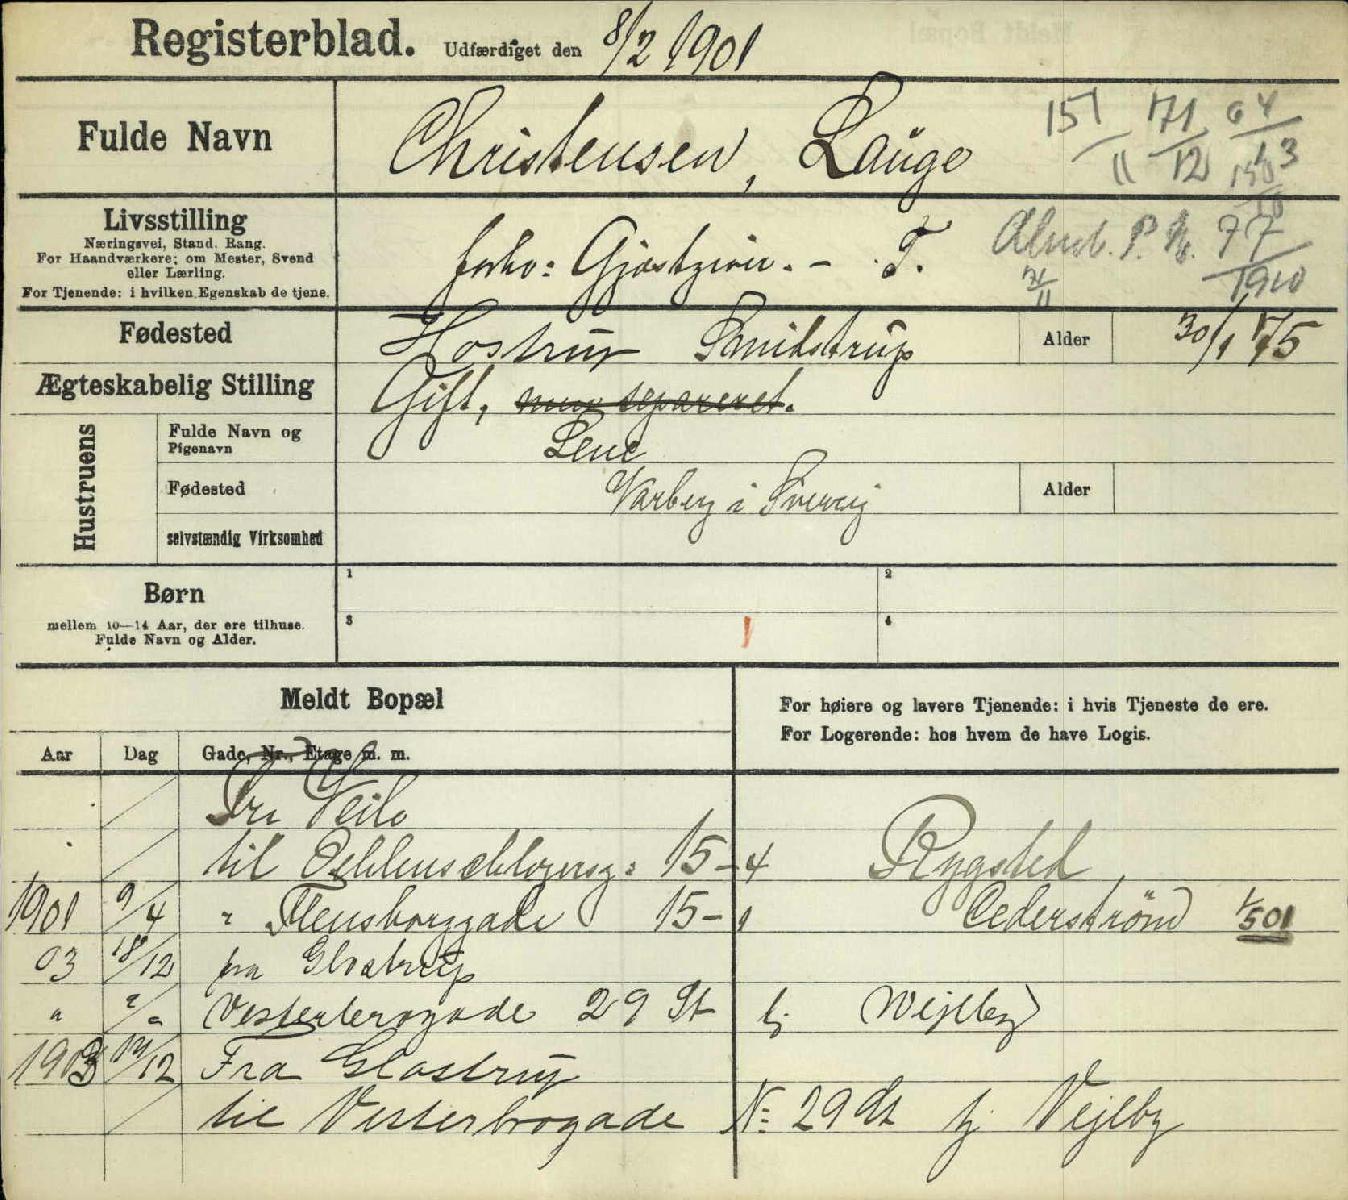 Registerblad. Udfærdiget den 8/2 1901
Fulde Navn
Christensen, Lauge
151/11 171/12 64/13
Livsstilling
Næringsvei, Stand. Rang.
For Haandværkere; om Mester, Svend
eller Lærling.
For Tjenende: i hvilken Egenskab de tjene.
forhv: Gjæstgiver. - T.
77/1910
Fødested
Hostrup Smidstrup
Alder
30/1 75
Ægteskabelig Stilling
Gift, separeret.
Hustruens
Fulde Navn og
Pigenavn
Lene
Fødested
Varberg i Sverrig
Alder
selvstændig Virksomhed
Børn
mellem 10—14 Aar, der ere tilhuse.
Fulde Navn og Alder.
1
2
3
4
Meldt Bopæl
For høiere og lavere Tjenende: i hvis Tjeneste de ere.
For Logerende: hos hvem de have Logis.
Aar Dag Gade, Nr., Etage m. m.
Fra Veile
til Oehlenschlägersg: 15-4 Rygsted
1901 9/4 " Flensborggade 15-1 Cederstrøm 1/501
03 18/12 fra Glostrup
" "/" Vesterbrogade 29 St hj Wejlby
1903 /12 Fra Glostrup
til Vesterbrogade No 29 St hj Vejlby